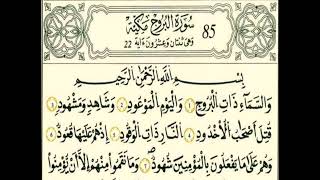 سُورَةُ الْبُرُوجِ مَكِّيَّة 85
وَهِيَ ثِنْتَانِ وَعِشْرُونَ ءَايَة 22
بِسْمِ اللَّهِ الرَّحْمَٰنِ الرَّحِيمِ
وَالسَّمَاءِ ذَاتِ الْبُرُوجِ ١ وَالْيَوْمِ الْمَوْعُودِ ٢ وَشَاهِدٍ وَمَشْهُودٍ ٣
قُتِلَ أَصْحَابُ الْأُخْدُودِ ٤ النَّارِ ذَاتِ الْوَقُودِ ٥ إِذْ هُمْ عَلَيْهَا قُعُودٌ ٦
وَهُمْ عَلَىٰ مَا يَفْعَلُونَ بِالْمُؤْمِنِينَ شُهُودٌ ٧ وَمَا نَقَمُوا مِنْهُمْ إِلَّا أَنْ يُؤْمِنُوا